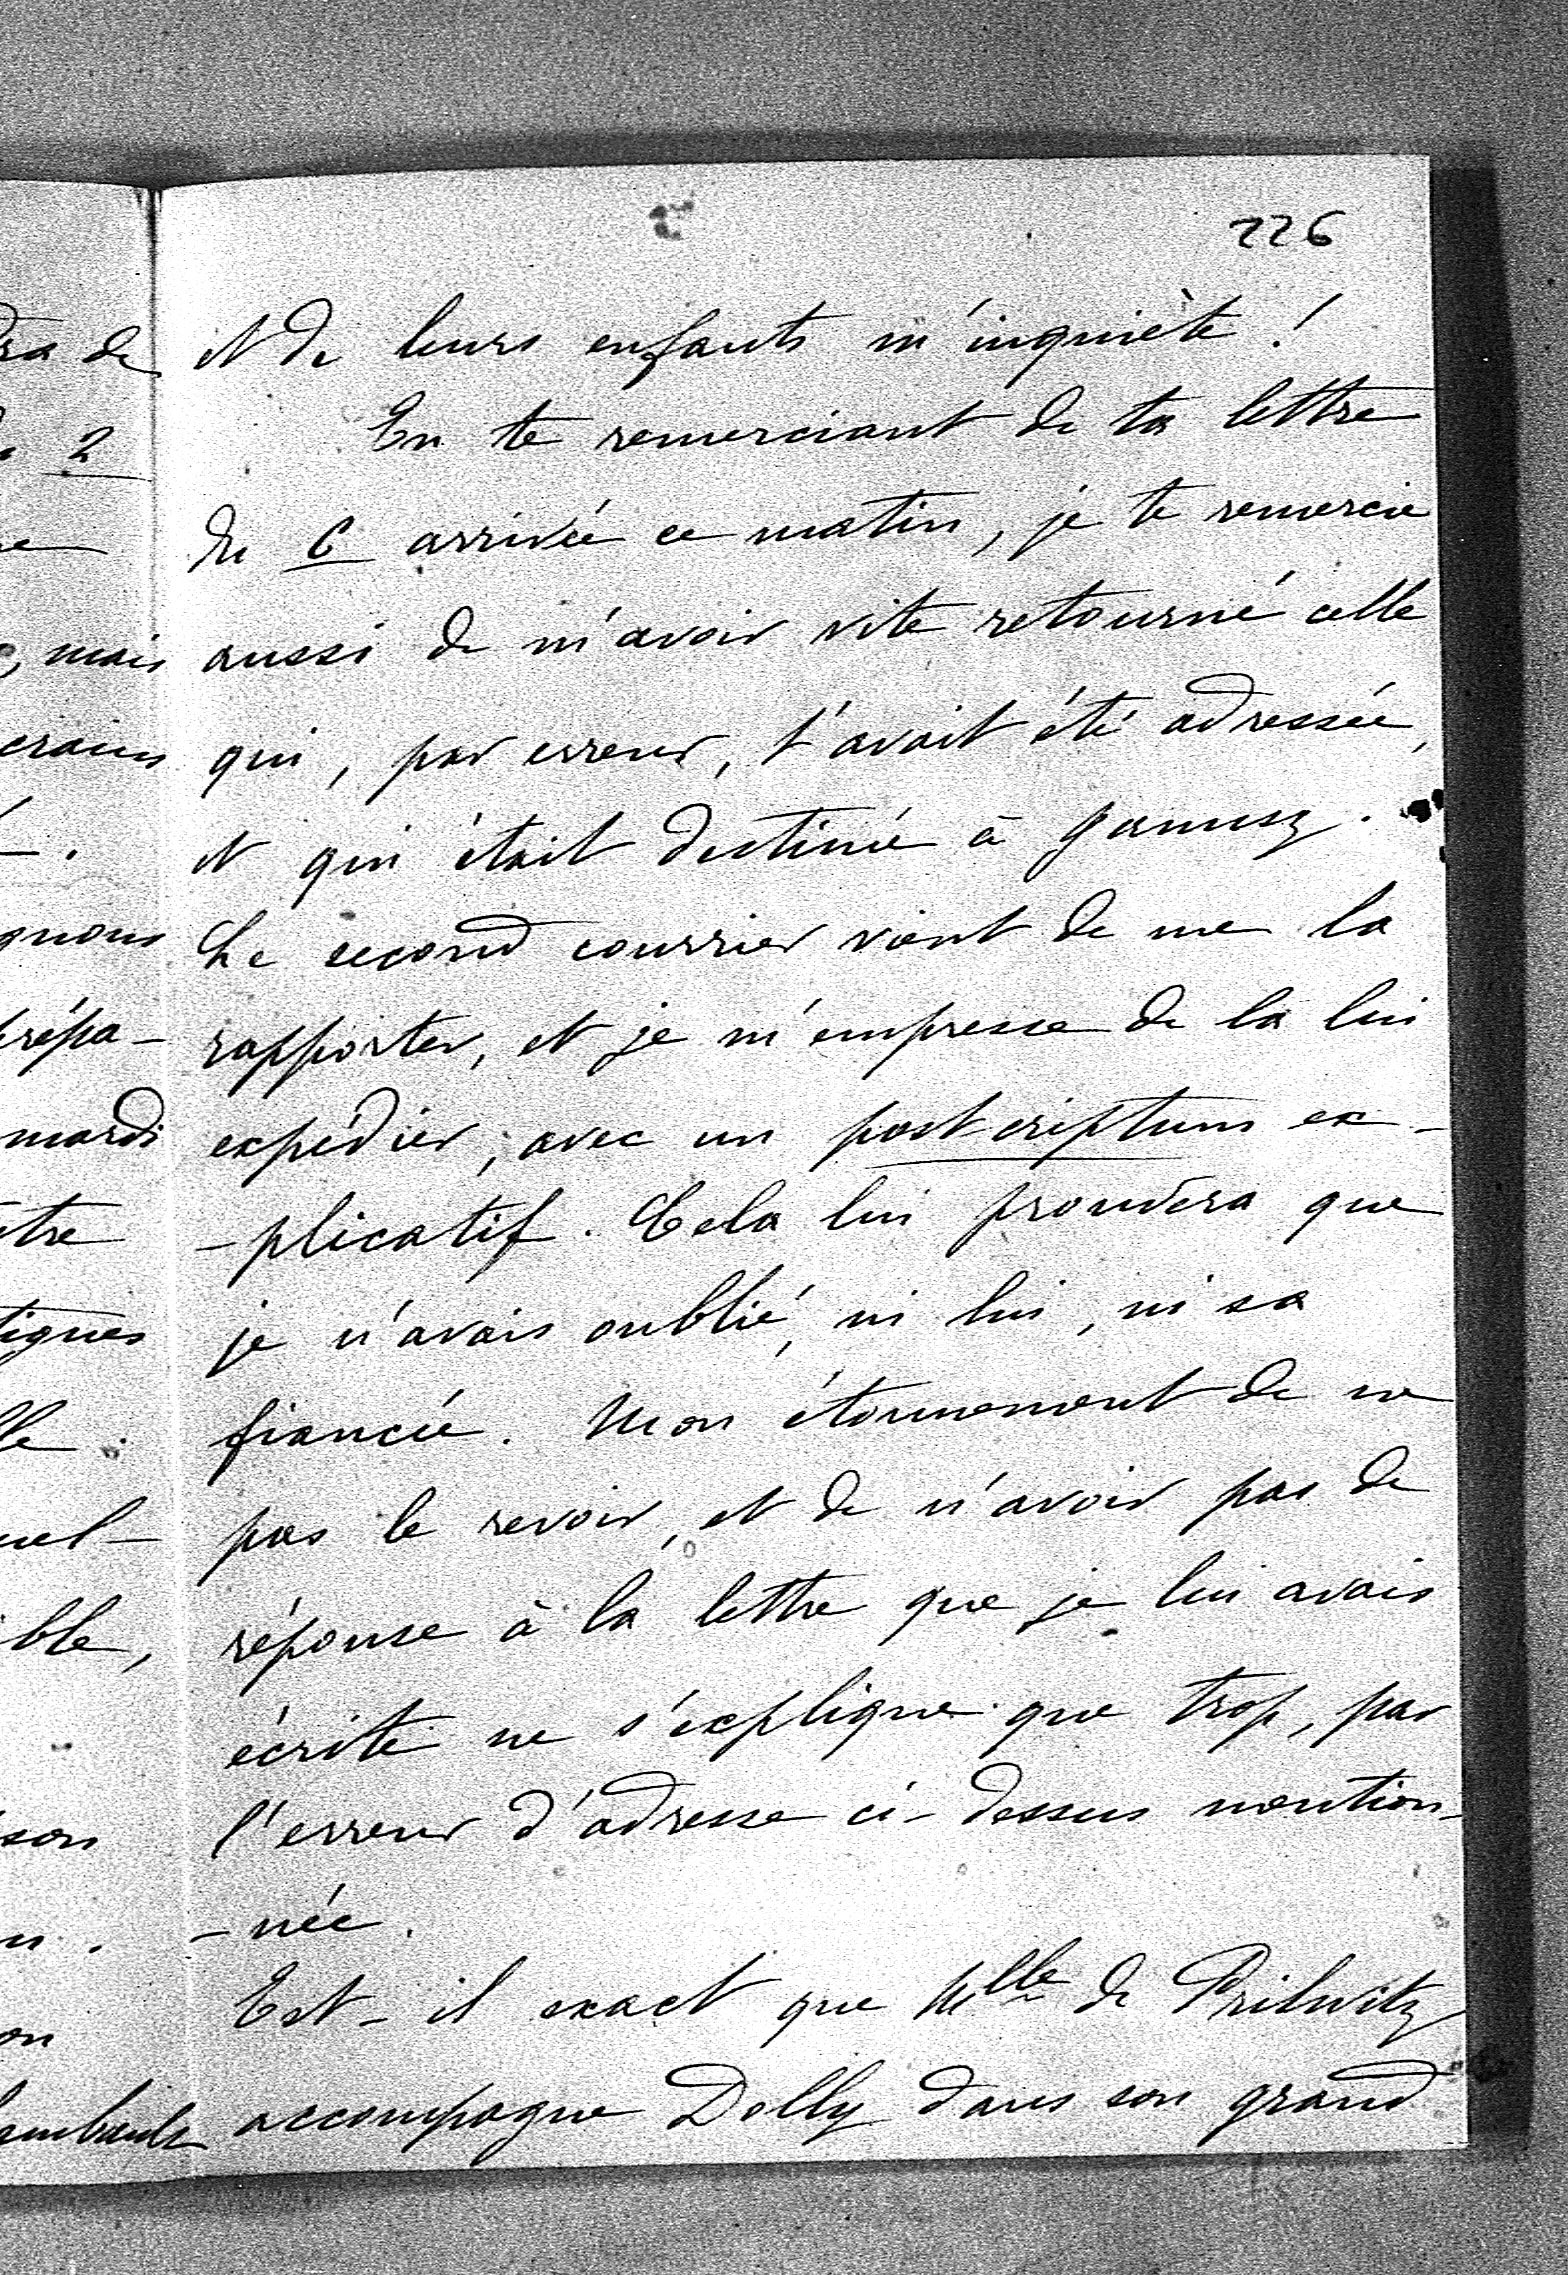 226
et de leurs enfants m'inquiète !
En te remerciant de ta lettre
du 6 arrivée ce matin, je te remercie
aussi de m'avoir vite retourné celle
qui, par erreur, t'avait été adressée,
et qui était destinée à
Le second courrier vient de me la
rapporter, et je m'empresse de la lui
expédier, avec un post-criptum ex-
-plicatif. Cela lui prouvera que
je n'avais oublié, ni lui, ni sa
fiancée. Mon étonnement de ne
pas le revoir, et de n'avoir pas de
réponse à la lettre que je lui avais
écrite ne s'explique que trop, par
l'erreur d'adresse ci-dessus mention-
-née.
Est-il exact que Mlle de Prilwitz
accompagne Dolly dans son grand